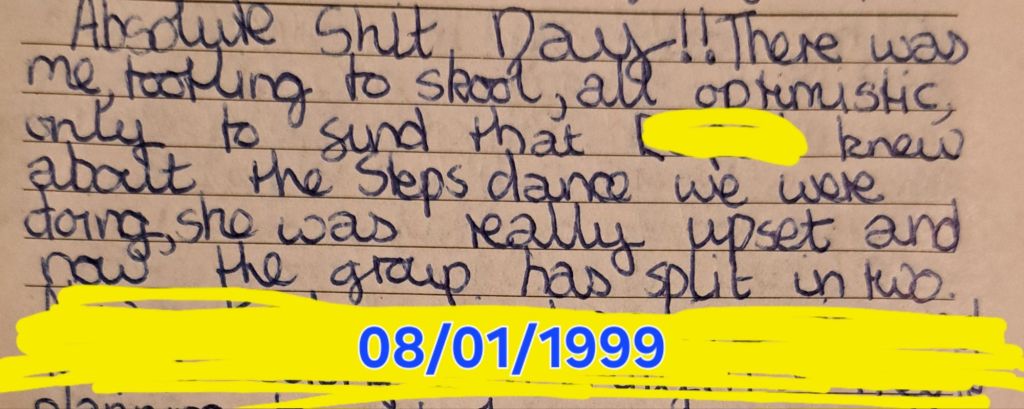 Absolute Shit Day!! There was
me, tootling to skool, all optimistic,
only to find that knew
about the Steps dance we were
doing, she was really upset and
now the group has split in two.
08/01/1999